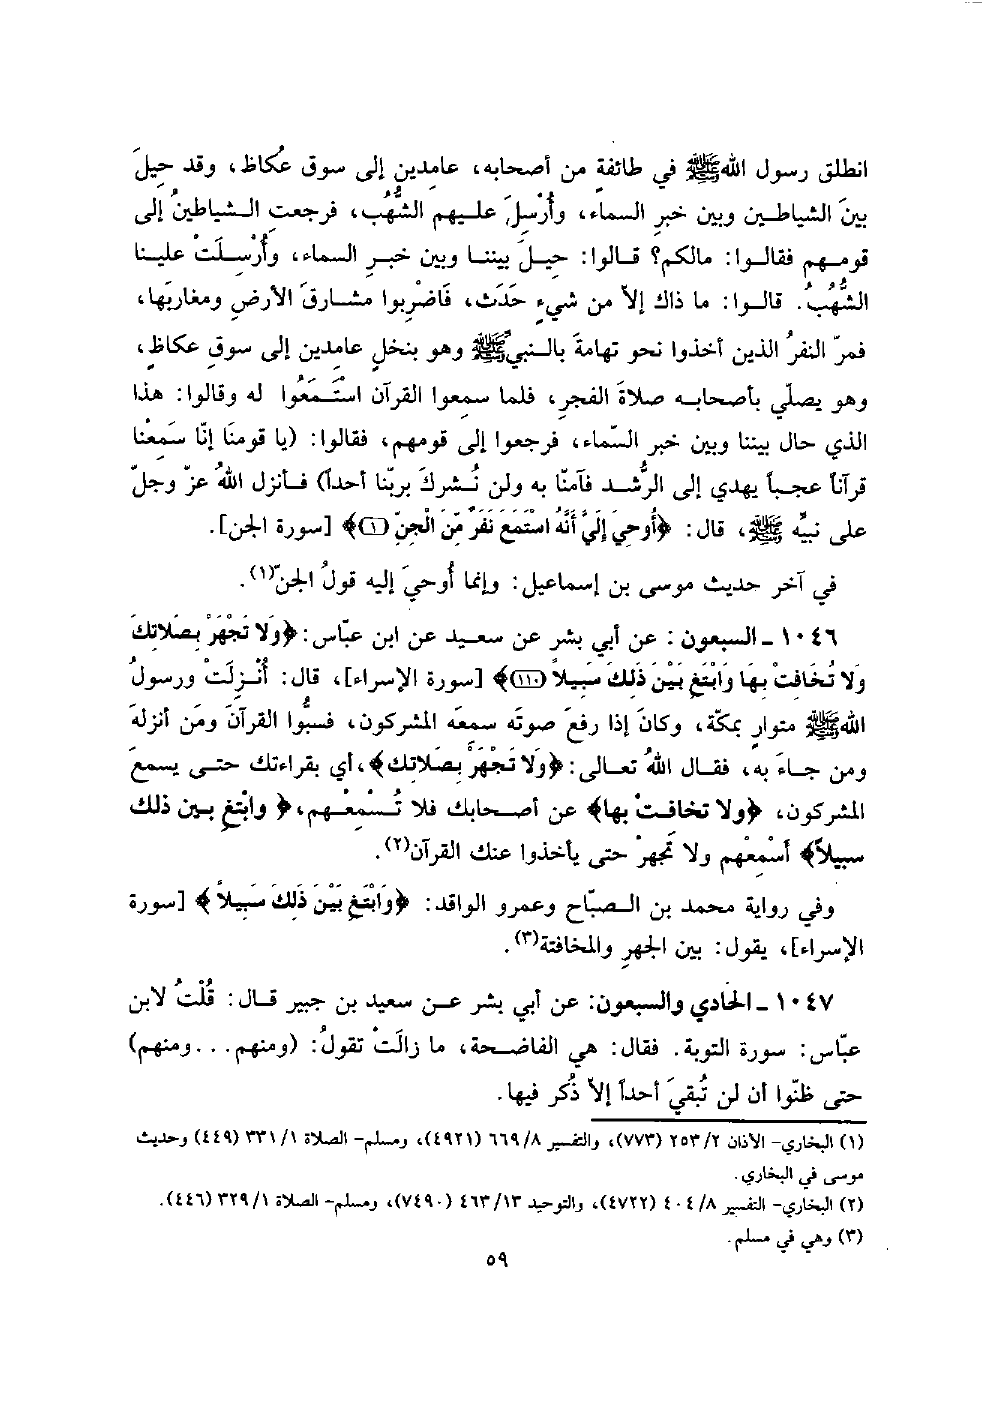 انطلق رسول الله ﷺ في طائفةٍ من أصحابه، عامدين إلى سوق عُكاظ، وقد حِيلَ
بينَ الشياطين وبين خبرِ السماء، وأُرْسِلَ عليهم الشُّهُب، فرجعتِ الشياطينُ إلى
قومهم فقالوا: مالكم؟ قالوا: حِيلَ بيننا وبين خبرِ السماء، وأُرْسِلَتْ علينا
الشُّهُبُ. قالوا: ما ذاك إلاّ من شيءٍ حَدَث، فَاضْرِبوا مشارقَ الأرضِ ومغاربَها،
فمرّ النفرُ الذين أخذوا نحو تهامةَ بالنبيِّ ﷺ وهو بنخلٍ عامدين إلى سوقِ عكاظٍ،
وهو يصلّي بأصحابه صلاةَ الفجرِ، فلما سمعوا القرآن اسْتَمَعُوا له وقالوا: هذا
الذي حال بيننا وبين خبر السّماء، فرجعوا إلى قومهم، فقالوا: (يا قومنَا إنّا سَمعْنا
قرآناً عجباً يهدي إلى الرُّشد فآمنّا به ولن نُشركَ بربّنا أحداً) فأنزل اللهُ عزّ وجلّ
على نبيِّه ﷺ، قال: ﴿أُوحِيَ إِلَيَّ أَنَّهُ اسْتَمَعَ نَفَرٌ مِّنَ الْجِنِّ (١)﴾ [سورة الجن].
في آخر حديث موسى بن إسماعيل: وإنما أُوحيَ إليه قولُ الجنّ(١).
١٠٤٦ ـ السبعون: عن أبي بشر عن سعيد عن ابن عبّاس: ﴿وَلَا تَجْهَرْ بِصَلَاتِكَ
وَلَا تُخَافِتْ بِهَا وَابْتَغِ بَيْنَ ذَلِكَ سَبِيلاً (١١٠)﴾ [سورة الإسراء]، قال: أُنْزِلَتْ ورسولُ
الله ﷺ متوارٍ بمكّة، وكانَ إذا رفعَ صوتَه سمعَه المشركون، فسبُّوا القرآنَ ومَن أنزلهَ
ومن جاءَ به، فقال اللهُ تعالى: ﴿وَلَا تَجْهَرْ بِصَلَاتِكَ﴾، أي بقراءتك حتى يسمع
المشركون، ﴿ولا تخافتْ بها﴾ عن أصحابك فلا تُسْمِعْهم، ﴿وابْتغِ بين ذلك
سبيلاً﴾ أَسْمِعْهم ولا تجهرْ حتى يأخذوا عنك القرآن(٢).
وفي رواية محمد بن الصبّاح وعمرو الواقد: ﴿وَابْتَغِ بَيْنَ ذَلِكَ سَبِيلاً﴾ [سورة
الإسراء]، يقول: بين الجهرِ والمخافتة(٣).
١٠٤٧ ـ الحادي والسبعون: عن أبي بشر عن سعيد بن جبير قال: قُلْتُ لابن
عبّاس: سورة التوبة. فقال: هي الفاضحة، ما زالَتْ تقولُ: (ومنهم...ومنهم)
حتى ظنّوا أن لن تُبقيَ أحداً إلاّ ذُكر فيها.
(١) البخاري- الأذان ٢/ ٢٥٣ (٧٧٣)، والتفسير ٨/ ٦٦٩ (٤٩٢١)، ومسلم- الصلاة ١/ ٣٣١ (٤٤٩) وحديث
موسى في البخاري.
(٢) البخاري- التفسير ٨/ ٤٠٤ (٤٧٢٢)، والتوحيد ١٣/ ٤٦٣ (٧٤٩٠)، ومسلم- الصلاة ١/ ٣٢٩ (٤٤٦).
(٣) وهي في مسلم.
٥٩